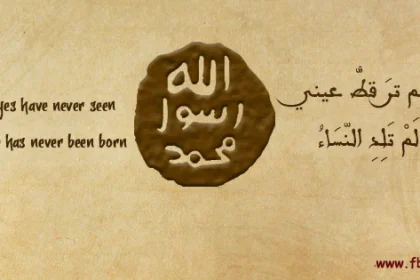 yes have never seen
has never been born
الله
رسول
محمد
م تَرَ قطُّ عيني
لَمْ تَلِدِ النِّسَاءُ
www.fb